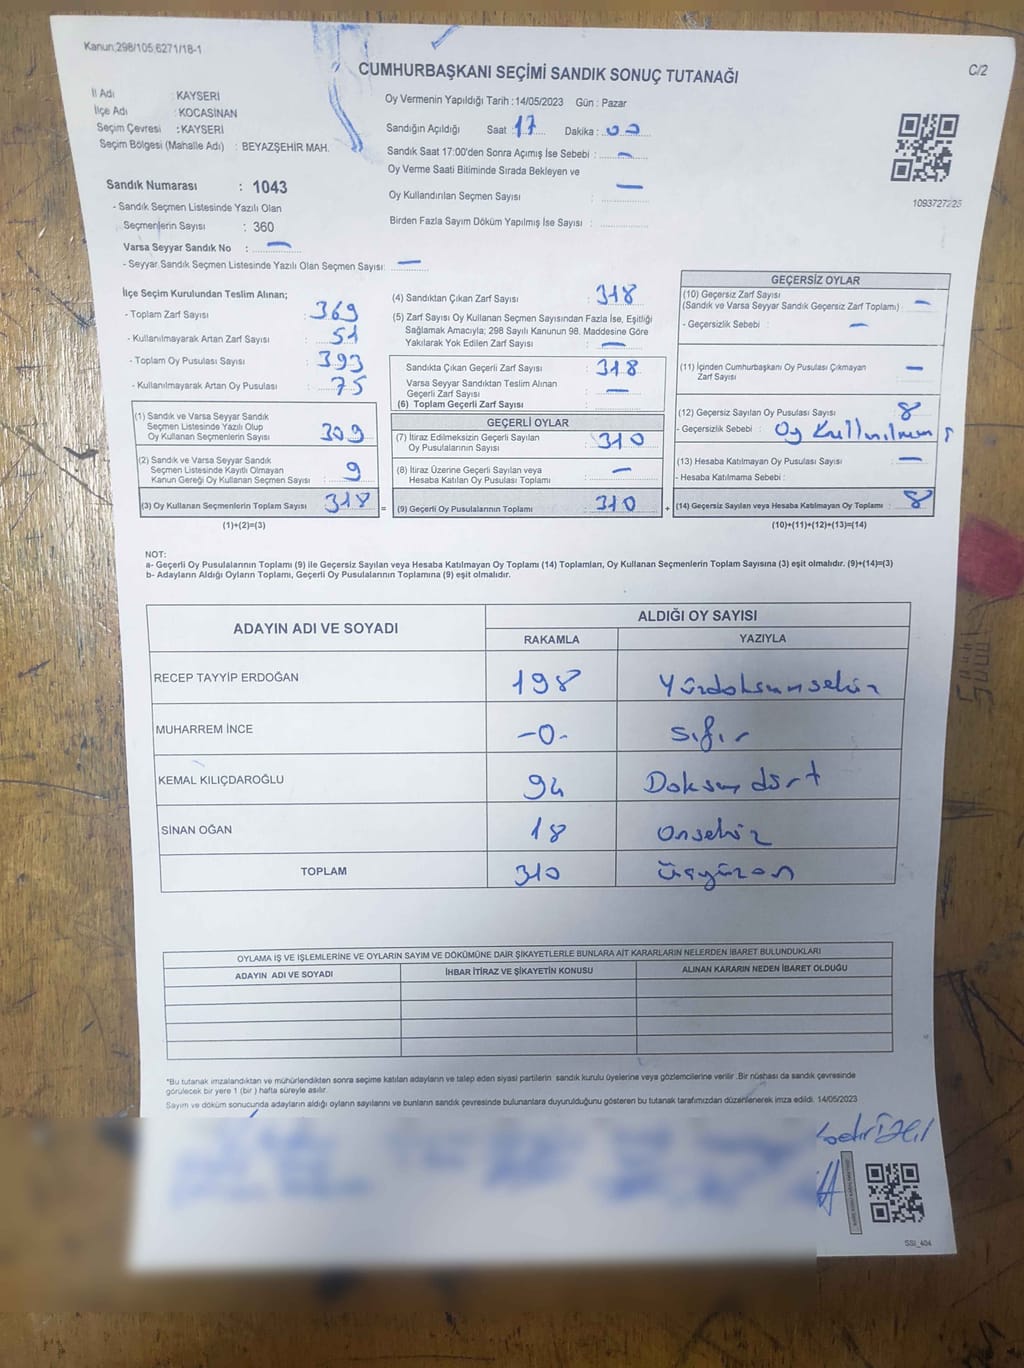 Kanun;298/105;6271/18-1
C/2
CUMHURBAŞKANI SEÇİMİ SANDIK SONUÇ TUTANAĞI
İl Adı : KAYSERİ
İlçe Adı : KOCASİNAN
Seçim Çevresi : KAYSERİ
Seçim Bölgesi (Mahalle Adı) : BEYAZŞEHİR MAH.
Sandık Numarası : 1043
- Sandık Seçmen Listesinde Yazılı Olan
Seçmenlerin Sayısı : 360
Varsa Seyyar Sandık No : —
- Seyyar Sandık Seçmen Listesinde Yazılı Olan Seçmen Sayısı: —
Oy Vermenin Yapıldığı Tarih : 14/05/2023 Gün : Pazar
Sandığın Açıldığı Saat 17 Dakika : 00
Sandık Saat 17:00'den Sonra Açımış İse Sebebi : —
Oy Verme Saati Bitiminde Sırada Bekleyen ve
Oy Kullandırılan Seçmen Sayısı : —
Birden Fazla Sayım Döküm Yapılmış İse Sayısı :
1093727225
İlçe Seçim Kurulundan Teslim Alınan;
- Toplam Zarf Sayısı : 369
- Kullanılmayarak Artan Zarf Sayısı : 51
- Toplam Oy Pusulası Sayısı : 393
- Kullanılmayarak Artan Oy Pusulası : 75
(1) Sandık ve Varsa Seyyar Sandık
Seçmen Listesinde Yazılı Olup
Oy Kullanan Seçmenlerin Sayısı : 309
(2) Sandık ve Varsa Seyyar Sandık
Seçmen Listesinde Kayıtlı Olmayan
Kanun Gereği Oy Kullanan Seçmen Sayısı : 9
(3) Oy Kullanan Seçmenlerin Toplam Sayısı : 318 =
(1)+(2)=(3)
(4) Sandıktan Çıkan Zarf Sayısı : 318
(5) Zarf Sayısı Oy Kullanan Seçmen Sayısından Fazla İse, Eşitliği
Sağlamak Amacıyla; 298 Sayılı Kanunun 98. Maddesine Göre
Yakılarak Yok Edilen Zarf Sayısı : —
Sandıkta Çıkan Geçerli Zarf Sayısı : 318
Varsa Seyyar Sandıktan Teslim Alınan
Geçerli Zarf Sayısı : —
(6) Toplam Geçerli Zarf Sayısı :
GEÇERLİ OYLAR
(7) İtiraz Edilmeksizin Geçerli Sayılan
Oy Pusulalarının Sayısı : 310
(8) İtiraz Üzerine Geçerli Sayılan veya
Hesaba Katılan Oy Pusulası Toplamı : —
(9) Geçerli Oy Pusulalarının Toplamı : 310 +
GEÇERSİZ OYLAR
(10) Geçersiz Zarf Sayısı
(Sandık ve Varsa Seyyar Sandık Geçersiz Zarf Toplamı) : —
- Geçersizlik Sebebi : —
(11) İçinden Cumhurbaşkanı Oy Pusulası Çıkmayan
Zarf Sayısı : —
(12) Geçersiz Sayılan Oy Pusulası Sayısı : 8
- Geçersizlik Sebebi : Oy
(13) Hesaba Katılmayan Oy Pusulası Sayısı : —
- Hesaba Katılmama Sebebi :
(14) Geçersiz Sayılan veya Hesaba Katılmayan Oy Toplamı : 8
(10)+(11)+(12)+(13)=(14)
NOT:
a- Geçerli Oy Pusulalarının Toplamı (9) ile Geçersiz Sayılan veya Hesaba Katılmayan Oy Toplamı (14) Toplamları, Oy Kullanan Seçmenlerin Toplam Sayısına (3) eşit olmalıdır. (9)+(14)=(3)
b- Adayların Aldığı Oyların Toplamı, Geçerli Oy Pusulalarının Toplamına (9) eşit olmalıdır.
ADAYIN ADI VE SOYADI ALDIĞI OY SAYISI
RAKAMLA YAZIYLA
RECEP TAYYİP ERDOĞAN 198 Yüzdoksansekiz
MUHARREM İNCE -0- sıfır
KEMAL KILIÇDAROĞLU 94 Doksan dört
SİNAN OĞAN 18 Onsekiz
TOPLAM 310 Üçyüzon
OYLAMA İŞ VE İŞLEMLERİNE VE OYLARIN SAYIM VE DÖKÜMÜNE DAİR ŞİKAYETLERLE BUNLARA AİT KARARLARIN NELERDEN İBARET BULUNDUKLARI
ADAYIN ADI VE SOYADI İHBAR İTİRAZ VE ŞİKAYETİN KONUSU ALINAN KARARIN NEDEN İBARET OLDUĞU
*Bu tutanak imzalandıktan ve mühürlendikten sonra seçime katılan adayların ve talep eden siyasi partilerin sandık kurulu üyelerine veya gözlemcilerine verilir .Bir nüshası da sandık çevresinde
görülecek bir yere 1 (bir ) hafta süreyle asılır.
Sayım ve döküm sonucunda adayların aldığı oyların sayılarını ve bunların sandık çevresinde bulunanlara duyurulduğunu gösteren bu tutanak tarafımızdan düzenlenerek imza edildi. 14/05/2023
SSI_404